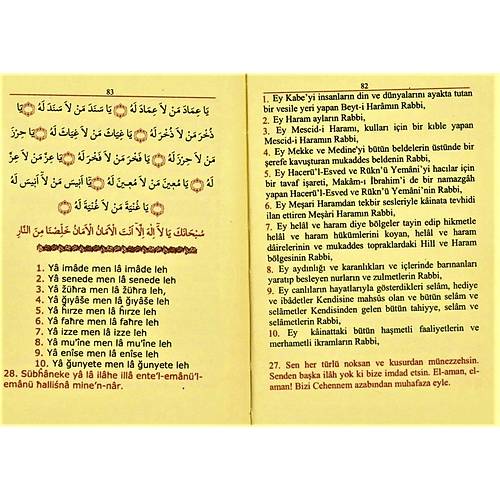 83
يَا عِمَادَ مَنْ لَا عِمَادَ لَهُ ۞ يَا سَنَدَ مَنْ لَا سَنَدَ لَهُ ۞ يَا
ذُخْرَ مَنْ لَا ذُخْرَ لَهُ ۞ يَا غِيَاثَ مَنْ لَا غِيَاثَ لَهُ ۞ يَا حِرْزَ
مَنْ لَا حِرْزَ لَهُ ۞ يَا فَخْرَ مَنْ لَا فَخْرَ لَهُ ۞ يَا عِزَّ مَنْ لَا عِزَّ
لَهُ ۞ يَا مُعِينَ مَنْ لَا مُعِينَ لَهُ ۞ يَا أَنِيسَ مَنْ لَا أَنِيسَ لَهُ
۞ يَا غُنْيَةَ مَنْ لَا غُنْيَةَ لَهُ ۞
سُبْحَانَكَ يَا لَا إِلٰهَ إِلَّا أَنْتَ الْأَمَانُ الْأَمَانُ خَلِّصْنَا مِنَ النَّارِ
1. Yâ imâde men lâ imâde leh
2. Yâ senede men lâ senede leh
3. Yâ žühra men lâ žühra leh,
4. Yâ ğıyâse men lâ ğıyâse leh
5. Yâ hırze men lâ hırze leh
6. Yâ fahre men lâ fahre leh
7. Yâ izze men lâ izze leh
8. Yâ mu'îne men lâ mu'îne leh
9. Yâ enîse men lâ enîse leh
10. Yâ ğunyete men lâ ğunyete leh
28. Sübhâneke yâ lâ ilâhe illâ ente'l-emânü'l-
emânü hallisnâ mine'n-nâr.
82
1. Ey Kabe'yi insanların din ve dünyalarını ayakta tutan
bir vesile yeri yapan Beyt-i Harâmın Rabbi,
2. Ey Haram ayların Rabbi,
3. Ey Mescid-i Haramı, kulları için bir kıble yapan
Mescid-i Haramın Rabbi,
4. Ey Mekke ve Medine'yi bütün beldelerin üstünde bir
şerefe kavuşturan mukaddes beldenin Rabbi,
5. Ey Hacerü'l-Esved ve Rükn'ü Yemâni'yi hacılar için
bir tavaf işareti, Makâm-ı İbrahim'i de bir namazgâh
yapan Hacerü'l-Esved ve Rükn'ü Yemâni'nin Rabbi,
6. Ey Meşari Haramdan tekbir sesleriyle kâinata tevhidi
ilan ettiren Meşâri Haramın Rabbi,
7. Ey helâl ve haram diye bölgeler tayin edip hikmetle
helâl ve haram hükümlerini koyan, helâl ve haram
dâirelerinin ve mukaddes topraklardaki Hill ve Haram
bölgesinin Rabbi,
8. Ey aydınlığı ve karanlıkları ve içlerinde barınanları
yaratıp besleyen nurların ve zulmetlerin Rabbi,
9. Ey canlıların hayatlarıyla gösterdikleri selâm, hediye
ve ibâdetler Kendisine mahsûs olan ve bütün selâm ve
selâmetler Kendisinden gelen bütün tahiyye, selâm ve
selâmetlerin Rabbi,
10. Ey kâinattaki bütün haşmetli faaliyetlerin ve
merhametli ikramların Rabbi,
27. Sen her türlü noksan ve kusurdan münezzehsin.
Senden başka ilâh yok ki bize imdad etsin. El-aman, el-
aman! Bizi Cehennem azabından muhafaza eyle.